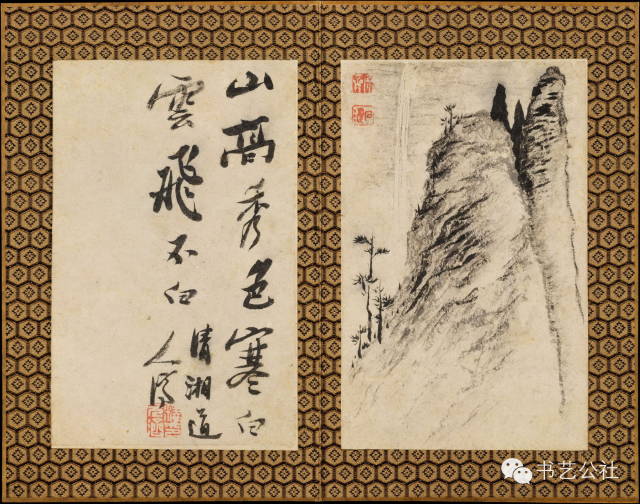 山高秀色寒白
雲飛不白
清湘道
人濟
书艺公社